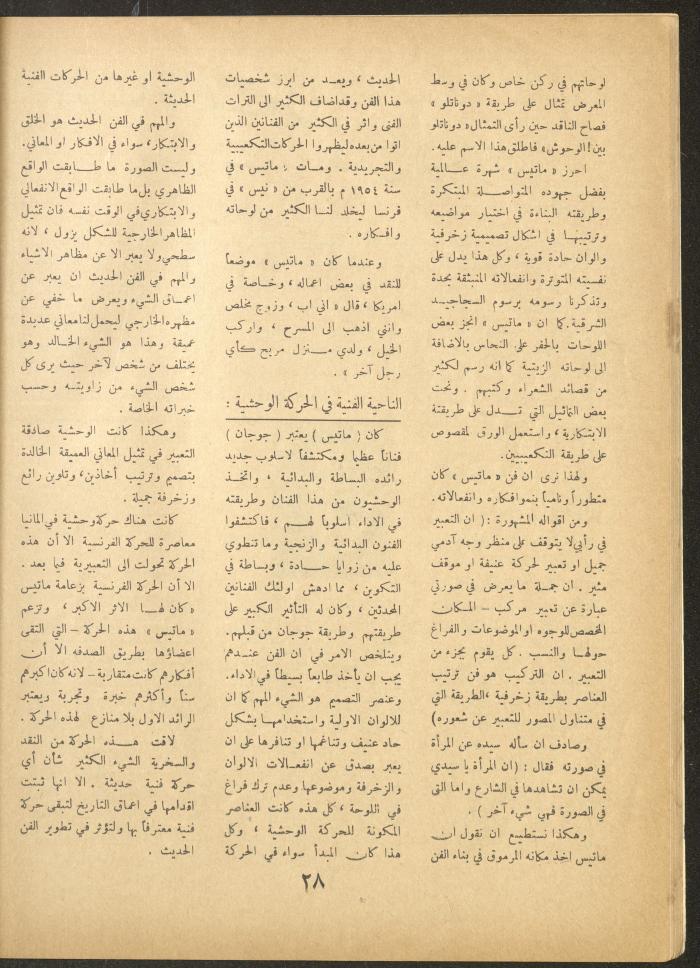 لوحاتهم في ركن خاص وكان في وسط
المعرض تمثال على طريقة « دوناتلو »
فصاح الناقد حين رأى التمثال « دوناتلو
بين ! الوحوش » فاطلق هذا الاسم عليه.
احرز « ماتيس » شهرة عــالمية
بفضل جهوده المتواصــلة المبتكرة
وطريقته البناءة في اختيار مواضيعه
وترتيبهــا في اشكال تصميمية زخرفية
والوان حادة قوية ، وكل هذا يدل على
نفسيته المتوترة وانفعالاته المنبثقة بحدة
وتذكرنا رسومه برسوم السجاجيــد
الشرقية . كما ان « ماتيس » انجز بعض
اللوحات بالحفر على النحاس بالاضافة
الى لوحاته الزيتية كما انه رسم لكثير
من قصائد الشعراء وكتبهم . ونحت
بعض التماثيل التي تــدل على طريقتة
الابتكارية ، واستعمل الورق لمقصوص
على طريقة التكعيبيين.
ولهذا نرى ان فن « ماتيس » كان
متطوراً ونامياً بنمو افكاره وانفعالاته.
ومن اقواله المشهورة : ( ان التعبير
في رأيي لا يتوقف على منظر وجه آدمي
جميل او تعبير لحركة عنيفة او موقف
مثير . ان جمــلة ما يعرض في صورتي
عبارة عن تعبير مركب – المــكان
المخصص للوجوه او الموضوعات والفراغ
حولهــا والنسب . كل يقوم بجزء من
التعبير . ان التركيب هو فن ترتيب
العناصر بطريقة زخرفية ، الطريقة التي
في متناول المصور للتعبير عن شعوره)
وصادف ان سأله سيده عن المرأة
في صورته فقال : ( ان المرأة يا سيدي
يمكن ان تشاهدها في الشارع واما التي
في الصورة فهي شيء آخر ) .
وهكذا نستطيــع ان نقول ان
ماتيس اخذ مكانه المرموق في بناء الفن
الحديث ، ويعــد من ابرز شخصيات
هذا الفن وقد اضاف الكثير الى الترات
الفنى واثر في الكثير من الفنانين الذين
اتوا من بعده ليظهروا الحركات التكعيبية
والتجريدية . ومــات « ماتيس » في
سنة ١٩٥٤ م بالقرب من « نيس » في
فرنسا ليخلد لنــا الكثير من لوحاته
وافــكاره .
وعندما كان « ماتيس » موضعاً
للنقد في بعض اعماله ، وخــاصة في
امريكا ، قال « اني اب ، وزوج مخلص
وانني اذهب الى المسرح ، واركب
الخيل ، ولدي منــزل مريح كــأي
رجل آخر » .
الناحية الفنية في الحركة الوحشية :
كان ( ماتيس ) يعتبر ( جوجان )
فناناً عظيما ومكتشفاً لاسلوب جديد
رائده البساطة والبدائية ، واتخــذ
الوحشيون من هذا الفنان وطريقته
في الاداء اسلوباً لهــم ، فاكتشفوا
الفنون البدائية والزنجية وما تنطوي
عليه من زوايا حــادة ، وبساطة في
التكوين ، مما ادهش اولئك الفنانين
المحدثين ، وكان له التأثير الكبير على
طريقتهم وطريقة جوجان من قبلهم.
ويتلخص الامر في ان الفن عنــدهم
يجب ان يأخذ طابعاً بسيطاً في الاداء.
وعنصر التصميم هو الشيء المهم كما ان
للالوان الاولية واستخدامهــا بشكل
حاد عنيف وتناغمها او تنافرها على ان
يعبر بصدق عن انفعــالات الالوان
والزخرفة وموضوعها وعدم ترك فراغ
في اللوحة ، كل هذه كانت العناصر
المكونة للحركة الوحشية ، وكل
هذا كان المبدأ سواء في الحركة
الوحشية او غيرها من الحركات الفنية
الحديثة .
والمهم في الفن الحديث هو الخلق
والابتكار ، سواء في الافكار او المعاني.
وليست الصورة ما طــابقت الواقع
الظاهري بل ما طابقت الواقع الانفعالي
والابتكاري في الوقت نفسه فان تمثيل
المظاهر الخارجية للشكل يزول ، لانه
سطحي ولا يعبر الا عن مظاهر الاشياء
والمهم في الفن الحديث ان يعبر عن
اعمــاق الشيء ويعرض ما خفي عن
مظهره الخارجي ليحمل لنا معاني عديدة
عميقة وهذا هو الشيء الخــالد وهو
يختلف من شخص لآخر حيث يرى كل
شخص الشيء من زاويتــه وحسب
خبراته الخاصة .
وهــكذا كانت الوحشية صادقة
التعبير في تمثيل المعاني العميقة الخالدة
بتصميم وترتيب أخاذين ، وتلوين رائع
وزخرفة جميلة .
كانت هناك حركة وحشية في المانيا
معاصرة للحركة الفرنسية الا أن هذه
الحركة تحولت الى التعبيرية فيما بعد .
الا أن الحركة الفرنسية بزعامة ماتيس
« كان لهــا الاثر الاكبر ، وتزعم
« ماتيس » هذه الحركة – التي التقى
اعضاؤها بطريق الصدفه الا أن
أفكارهم كانت متقاربة – لانه كان اكبرهم
سناً وأكثرهم خبرة وتجربة ويعتبر
الرائد الاول بلا منازع لهذه الحركة .
لاقت هــذه الحركة من النقد
والسخرية الشيء الكثير شأن أي
حركة فنية حديثة . الا انها ثبتت
اقدامها في اعماق التاريخ لتبقى حركة
فنية معترفاً بها ولتؤثر في تطوير الفن
الحديث .
٢٨